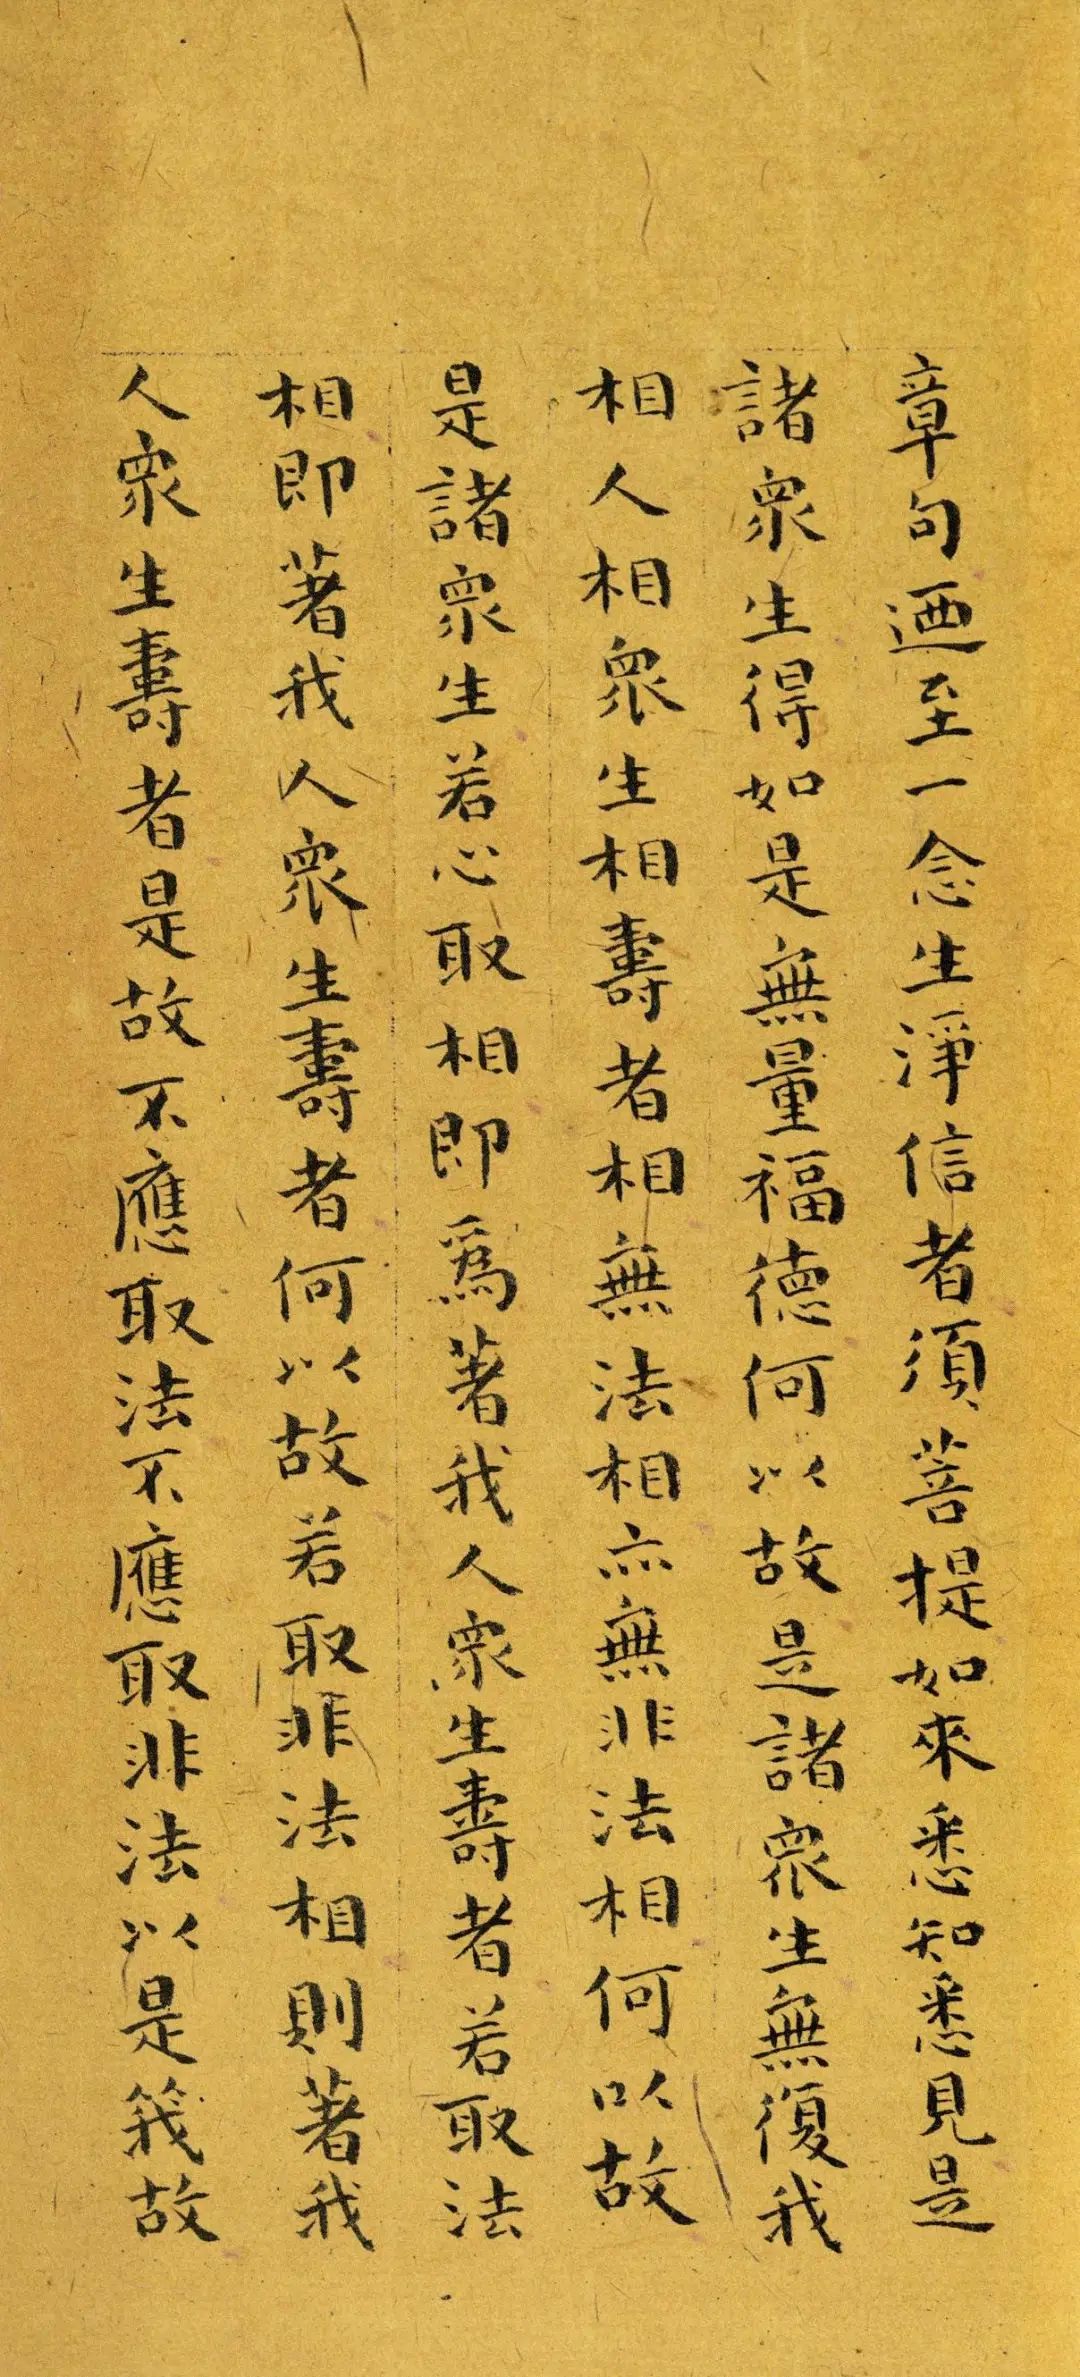 章句迺至一念生淨信者須菩提如來悉知悉見是
諸眾生得如是無量福德何以故是諸眾生無復我
相人相眾生相壽者相無法相亦無非法相何以故
是諸眾生若心取相即爲著我人眾生壽者若取法
相即著我人眾生壽者何以故若取非法相則著我
人眾生壽者是故不應取法不應取非法以是義故